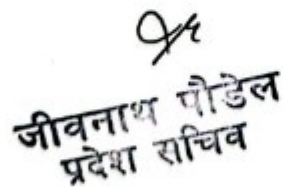 जीवनाथ पौडेल
प्रदेश सचिव